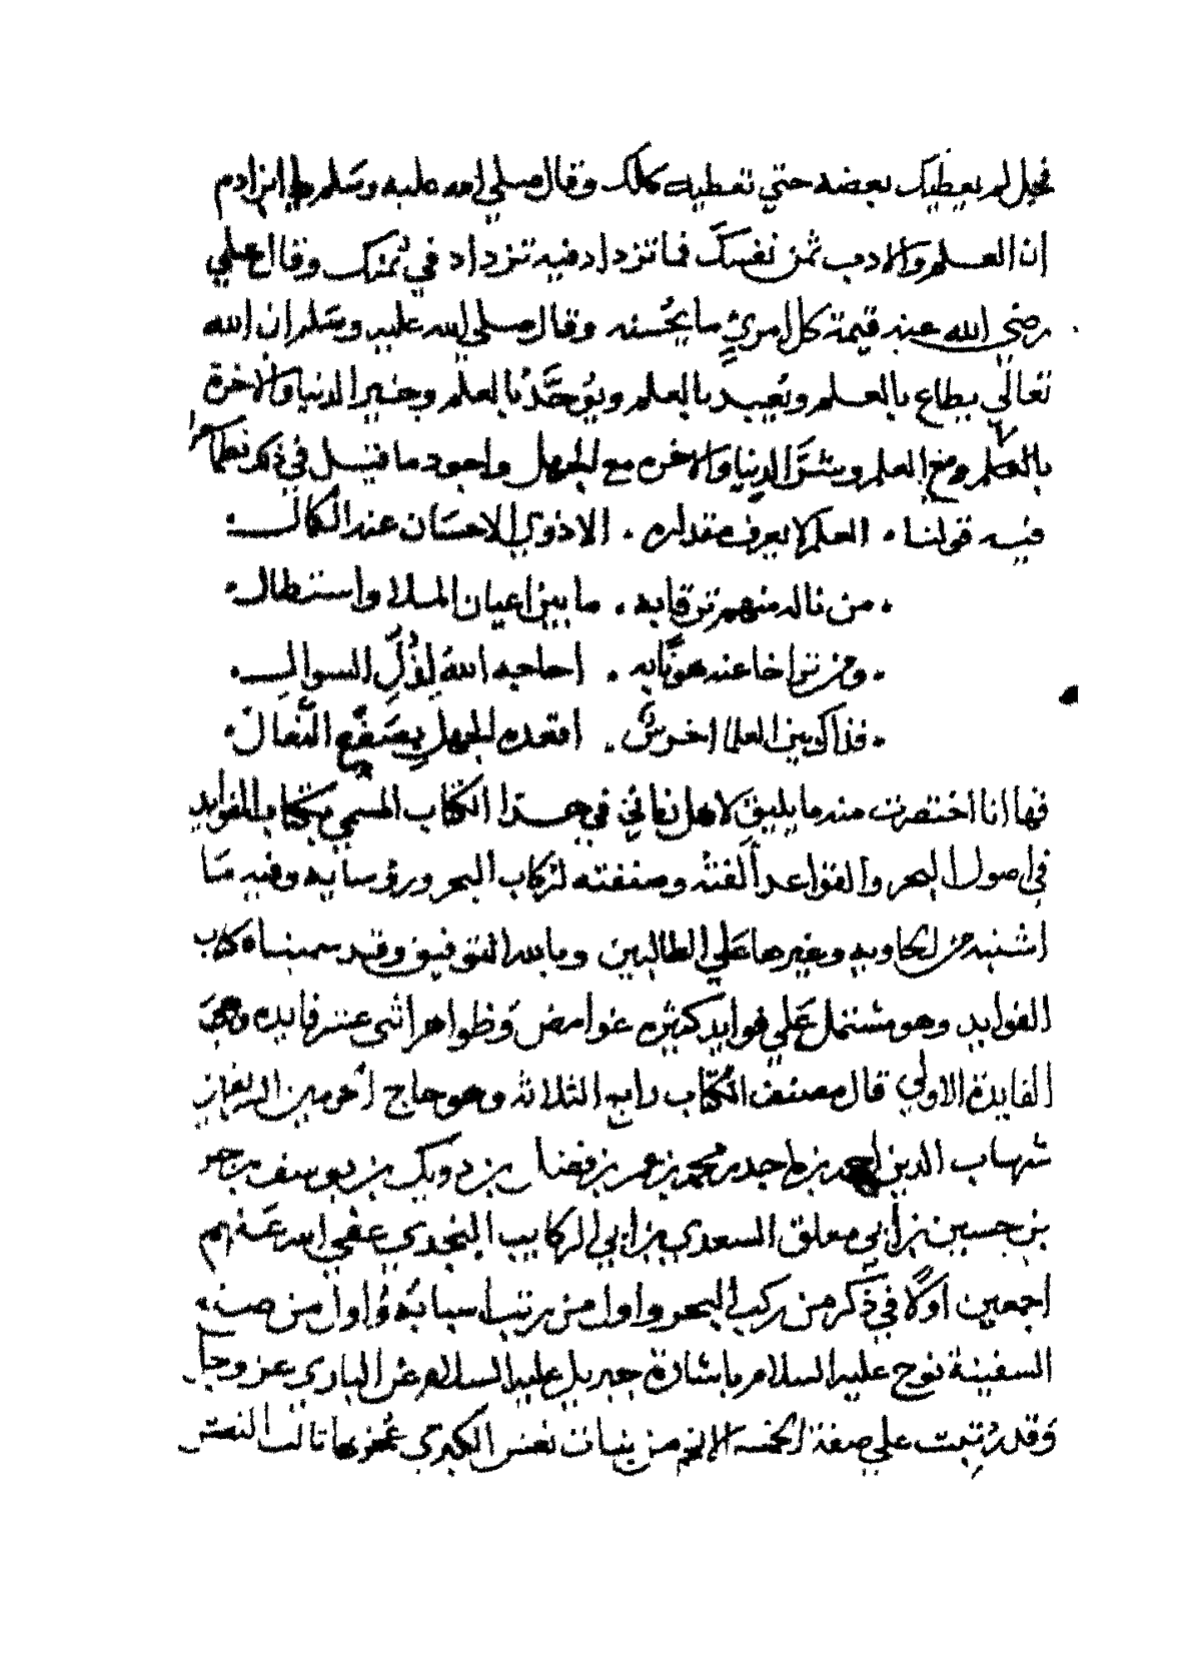 بخيل لم يعطيك بعضه حتي تعطيه كلك وقال صلي الله عليه وسلم يا ابن ادم
ان العلم والادب ثمن نفسك فما تزداد فيه تزداد في ثمنك وقال علي
رضي الله عنه قيمة كل امرئ ما يحسنه وقال صلي الله عليه وسلم ان الله
تعالي يطاع بالعلم ويعبد بالعلم ويوحد بالعلم وخير الدنيا والاخرة
بالعلم ومع العلم وشر الدنيا والاخره مع الجهل واجود ما قيل في ذكر
فيه قولنا . العلم لا يعرف مقداره . الا ذوي الاحسان عند الكمال
من ناله منهم ترقابه . ما بين اعيان الملا واستطال
ومن تواخا عنه هونا به . احاجه الله لذل السوال
فذاك بين العلما اخرس . اقعده الجهل بصف النعال
فها انا اختصرت منه ما يليق لاهل زماني في هذا الكتاب المسمي بكتاب الفوايد
في اصول البحر والقواعد الفته وصنفته لركاب البحر ورؤسايه وفيه ما
اشتبه من الحاويه وغيرها علي الطالبين وبالله التوفيق وقد سميناه كتاب
الفوايد وهو مشتمل علي فوايد كثيره غوامض وظواهر اثني عشر فايده
الفايدة الاولي قال مصنف الكتاب رابع الثلاثة وهو حاج الحرمين الشريفين
شهاب الدين احمد بن ماجد بن محمد بن عمر بن فضل بن دويك بن يوسف بن
بن حسين بن ابي معلق السعدي بن ابي الركايب النجدي عفي الله عنهم
اجمعين اولا في ذكر من ركب البحر واول من رتب اسبابه واول من صنع
السفينة نوح عليه السلام باشارة جبريل عليه السلام عن الباري عز وجل
وقد رتبت علي صفة الخمسة الانجم من بنات نعش الكبري عجزها ثالث النعش